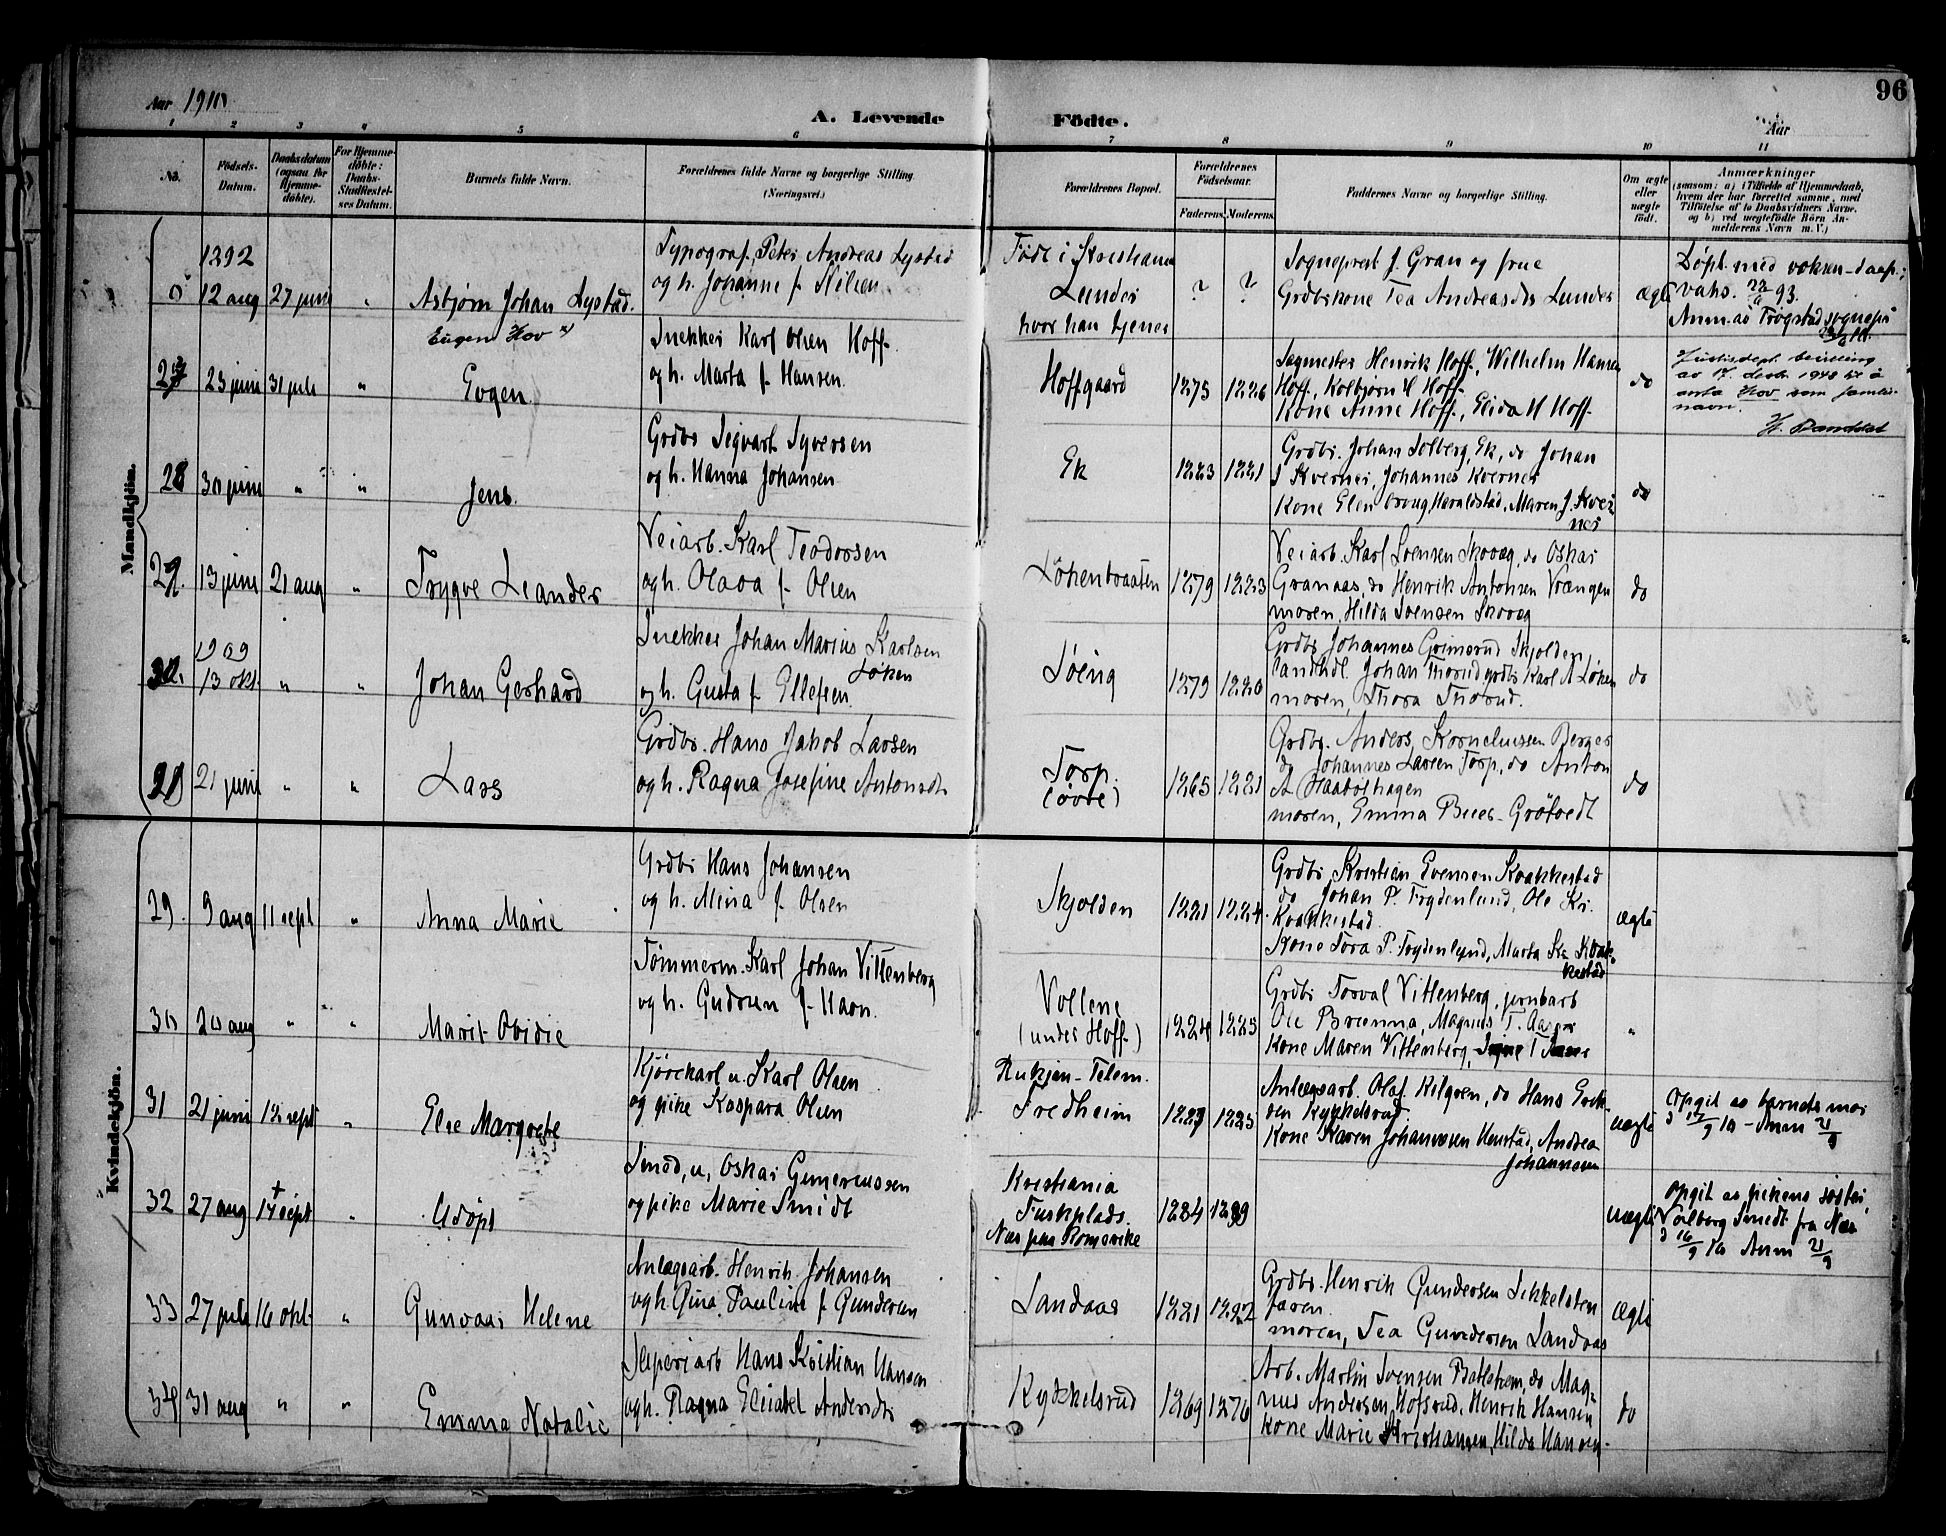 96
Aar 1910
A. Levende
Födte.
Aar
1 2 3 4 5 6 7 8 9 10 11
No.
Födsels-
Datum.
Daabsdatum
(ogsaa for
Hjemme-
döbte).
For Hjemme-
döbte:
Daabs-
Stadfæstel-
ses Datum.
Barnets fulde Navn.
Forældrenes fulde Navne og borgerlige Stilling
(Næringsvei.)
Forældrenes Bopæl.
Forældrenes
Födselsaar.
Faderens. Moderens.
Faddernes Navne og borgerlige Stilling.
Om ægte
eller
uægte
födt.
Anmærkninger
(saasom: a) i Tilfælde af Hjemmedaab,
hvem der har forrettet samme, med
Tilföielse af to Daabsvidners Navne.
og b) ved uægtefödte Börn An-
melderens Navn m. V.)
Mandkjön.
1892
12 aug 27 juni " Asbjørn Johan Lystad.
Typograf, Peter Andreas Lystad
og h. Johanne f. Nilsen
Født i Kristiania
Lunder
hvor han tjener
? ?
Sogneprest f. Gran og frue
Grdbrskone Tea Andreasdtr Lunder
ægte
Døpt med voksen-daap;
vaks. 93.
Anm. av Trøgstad sognepr
27 23 juni 31 juli "
Eugen Hov x)
Evgen
Snekker Karl Olsen Hoff
og h. Marta f. Hansen
Hoffgaard
1875 1886
Sagmester Henrik Hoff, Wilhelm Hansen
Hoff, Kolbjørn H Hoff
Kone Anne Hoff, Elida H Hoff
do
Justisdept. bevilling
av 17. destr. 1948 til å
anta Hov som familie-
navn.
28 30 juni " " Jens.
Grdbr Sigvart Syversen
og h. Hanna Johansen
Ek
1883 1881
Grdbr. Johan Solberg, Ek, do Johan
J Kverner, Johannes Kverner
Kone Elen Haraldstad, Maren J. Kver
ner
do
29. 13 juni 21 aug " Trygve Leander
Veiarb. Karl Teodorsen
og h. Olava f. Olsen
Løkenbraaten
1879 1883
Veiarb. Karl Svensen Skovæg, do Oskar
Granaas, do Henrik Antonsen Vrængen
moren, Hilda Svensen Skovæg
do
30. 1909
13 okt. " " Johan Gerhard
Snekker Johan Marius Karlsen
Løken
og h. Gusta f. Ellefsen
Løeng
1879 1880
Grdbr Johannes Grimsrud Skjolden,
landhdl. Johan Thorud, grdbr Karl A Løken
moren, Thora Thorud.
do
31 21 juni " " Lars
Grdbr. Hans Jakob Larsen
og h. Ragna Josefine Antonsdtr
Torp
(øvre)
1865 1881
Grdbr. Anders Kornelius­sen Berger
do Johannes Larsen Torp, do Anton
A Haabolhagen
moren, Emma Buer-Grøtvedt
do
Kvindekjön.
29. 9 aug 11 sept " Anna Marie
Grdbr Hans Johansen
og h. Mina f. Olsen
Skjolden
1881 1884
Grdbr Kristian Svensen Krakkestad
do Johan P. Frydenlund, Ole Kr.
Krakkestad
Kone Tora P. Frydenlund, Marta Kr Krak-
kestad
ægte
30 20 aug " " Marit Ovidie
Tømmerm. Karl Johan Vittenberg
og h. Gudrun f. Havn.
Vollene
(under Hoff)
1884 1883
Grdbr Torval Vittenberg, jernbarb
Ole Brænna, Magnus T. Aaser
Kone Maren Vittenberg,
"
31 21 juni 18 sept " Else Margrete
Kjørekarl u. Karl Olsen
og pike Kaspara Olsen
Rukjan-Telem.
Fredheim
1889 1885
Anlægsarb. Olaf Kilgren, do Hans Erik-
sen Kykkelsrud
Kone Karen Johannesen Henstad, Andrea
Johannesen
uægte
Opgit av barnets mor
d 17/9 10 - Anm 21/9
32 27 aug + 14 sept " Udøpt
Smed, u, Oskar Gunerius­sen
og pike Marie Smidt
Kristiania
Tuskplads
Næs paa Romerike
1884 1889
uægte
Opgit av pikens søster,
Valborg Smedt fra Næs
d 16/9 10 Anm 21/9
33 27 juli 16 okt. " Gunvaar Helene
Anlægsarb. Henrik Johansen
og h. Gina Pauline f. Gundersen
Landaas
1881 1882
Grdbr. Henrik Gundersen Sikkelsten
faren
moren, Tea Gundersen Landaas
ægte
34 31 aug " " Emma Natalie
Sliperiarb Hans Kristian Hansen
og h. Ragna Elisabet Andersdtr
Kykkelsrud
1869 1876
Arb. Martin Svensen Betlehem, do Mag-
nus Andersen Hofsrud, Henrik Hansen
Kone Marie Kristiansen, Hilda Hansen
do